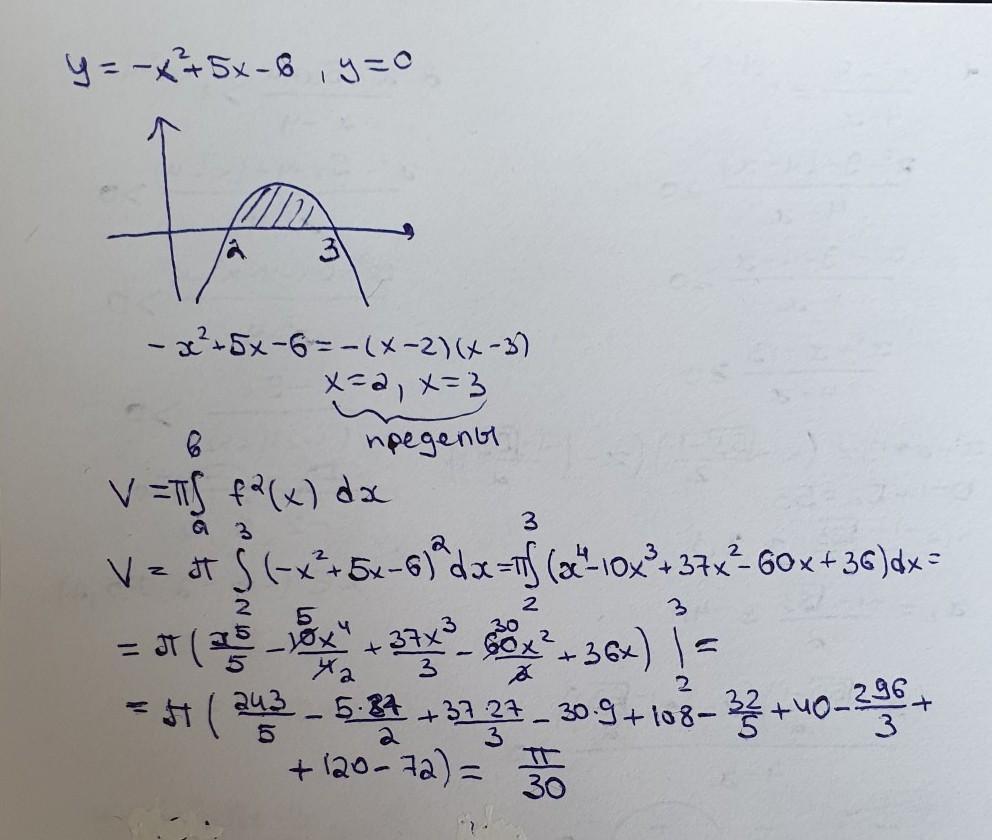 y = -x² + 5x - 6 , y = 0
2 3
-x² + 5x - 6 = -(x-2)(x-3)
x = 2, x = 3
пределы
V = π ∫ₐᵇ f²(x) dx
V = π ∫₂³ (-x² + 5x - 6)² dx = π ∫₂³ (x⁴ - 10x³ + 37x² - 60x + 36) dx =
= π ( x⁵/5 - 5 10x⁴/4 2 + 37x³/3 - 30 60x²/2 + 36x ) |₂³ =
= π ( 243/5 - 5·81/2 + 37·27/3 - 30·9 + 108 - 32/5 + 40 - 296/3 +
+ 120 - 72) = π/30